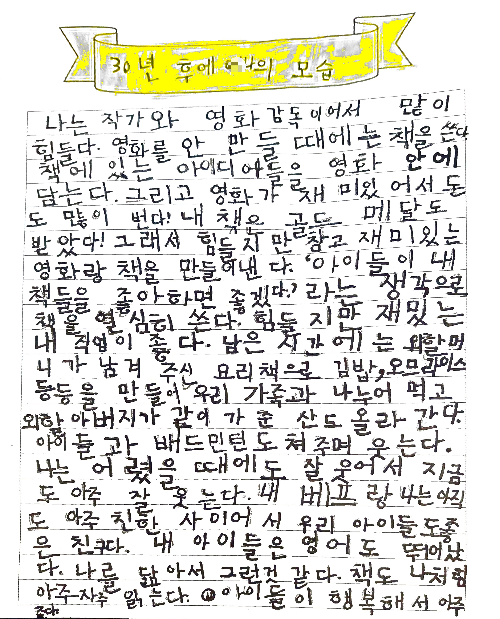 30년 후에 나의 모습
나는 작가와 영화감독이어서 많이
힘들다. 영화를 안 만들 때에는 책을 쓴다
책에 있는 아이디어들을 영화 안에
담는다. 그리고 영화가 재미있어서 돈
도 많이 번다! 내 책은 골드 메달도
받았다! 그래서 힘들지만 참고 재미있는
영화랑 책을 만들어낸다. '아이들이 내
책들을 좋아하면 좋겠다.' 라는 생각으로
책을 열심히 쓴다. 힘들지만 재밌는
내 직업이 좋다. 남은 시간에는 외할머
니가 남겨 주신 요리책으로 김밥, 오므라이스
등등을 만들어 우리 가족과 나눠 먹고
외할아버지가 같이 가 준 산도 올라간다.
아이들과 배드민턴도 쳐주며 웃는다.
나는 어렸을 때에도 잘 웃어서 지금
도 아주 잘 웃는다. 내 베프랑 나는 아직
도 아주 친한 사이어서 우리 아이들도 좋
은 친구다. 내 아이들은 영어도 뛰어났
다. 나를 닮아서 그런것 같다. 책도 나처럼
아주 자주 읽는다. 아이들이 행복해서 아주
좋다